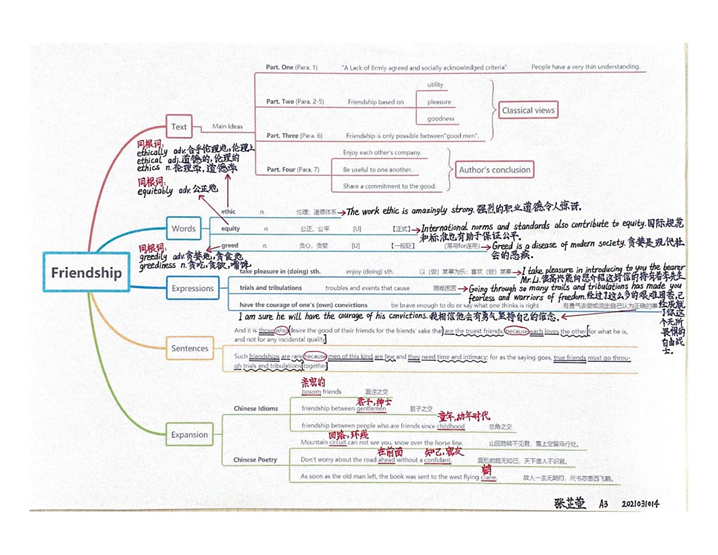 Friendship
Text
Main Ideas
Part. One (Para. 1) "A Lack of firmly agreed and socially acknowledged criteria" People have a very thin understanding.
Part. Two (Para. 2-5) Friendship based on
utility
pleasure
goodness
Classical views
Part. Three (Para. 6) Friendship is only possible between"good men".
Part. Four (Para. 7)
Enjoy each other's company.
Be useful to one another.
Share a commitment to the good.
Author's conclusion
同根词:
ethically adv. 合乎伦理地,伦理上
ethical adj. 道德的,伦理的
ethics n. 伦理学,道德学
同根词:
equitably adv. 公正地
Words
ethic n. 伦理;道德体系
The work ethic is amazingly strong. 强烈的职业道德令人惊讶.
equity n. 公正、公平 [U] 【正式】
International norms and standards also contribute to equity. 国际规范
和标准也有助于保证公平.
greed n. 贪心、贪婪 [U] 【一般贬】 (常与for连用)
Greed is a disease of modern society. 贪婪是现代社
会的恶疾.
同根词:
greedily adv. 贪婪地,贪食地
greediness n. 贪吃,贪欲,嘴馋
Expressions
take pleasure in (doing) sth. enjoy (doing) sth. 以(做)某事为乐;喜欢(做)某事
I take pleasure in introducing to you the bearer
Mr. Li. 很高兴能向您介绍这封信的持有者李先生.
trials and tribulations troubles and events that cause 艰难困苦
Going through so many trails and tribulations has made you
fearless and warriors of freedom. 经过了这么多的艰难困苦,已
经成就
了你这
个无所
畏惧的
自由战
士.
have the courage of one's (own) convictions be brave enough to do or say what one thinks is right 有勇气去做或说出自己认为正确的事
I am sure he will have the courage of his convictions. 我相信他会有勇气坚持自己的信念.
Sentences
And it is those who desire the good of their friends for the friends' sake that are the truest friends, because each loves the other for what he is,
and not for any incidental quality.
Such friendships are rare because men of this kind are few and they need time and intimacy: for as the saying goes, true friends must go throu-
gh trials and tribulations together.
Expansion
Chinese Idioms
亲密的
bosom friends 莫逆之交
君子,绅士
friendship between gentlemen 君子之交
童年,幼年时代
friendship between people who are friends since childhood 总角之交
Chinese Poetry
回路,环线
Mountain circuit can not see you, snow over the horse line. 山回路转不见君,雪上空留马行处。
在前面 知己,密友
Don't worry about the road ahead without a confidant. 莫愁前路无知己,天下谁人不识君。
鹤
As soon as the old man left, the book was sent to the west flying crane.
张芷萱 A3 2021031014